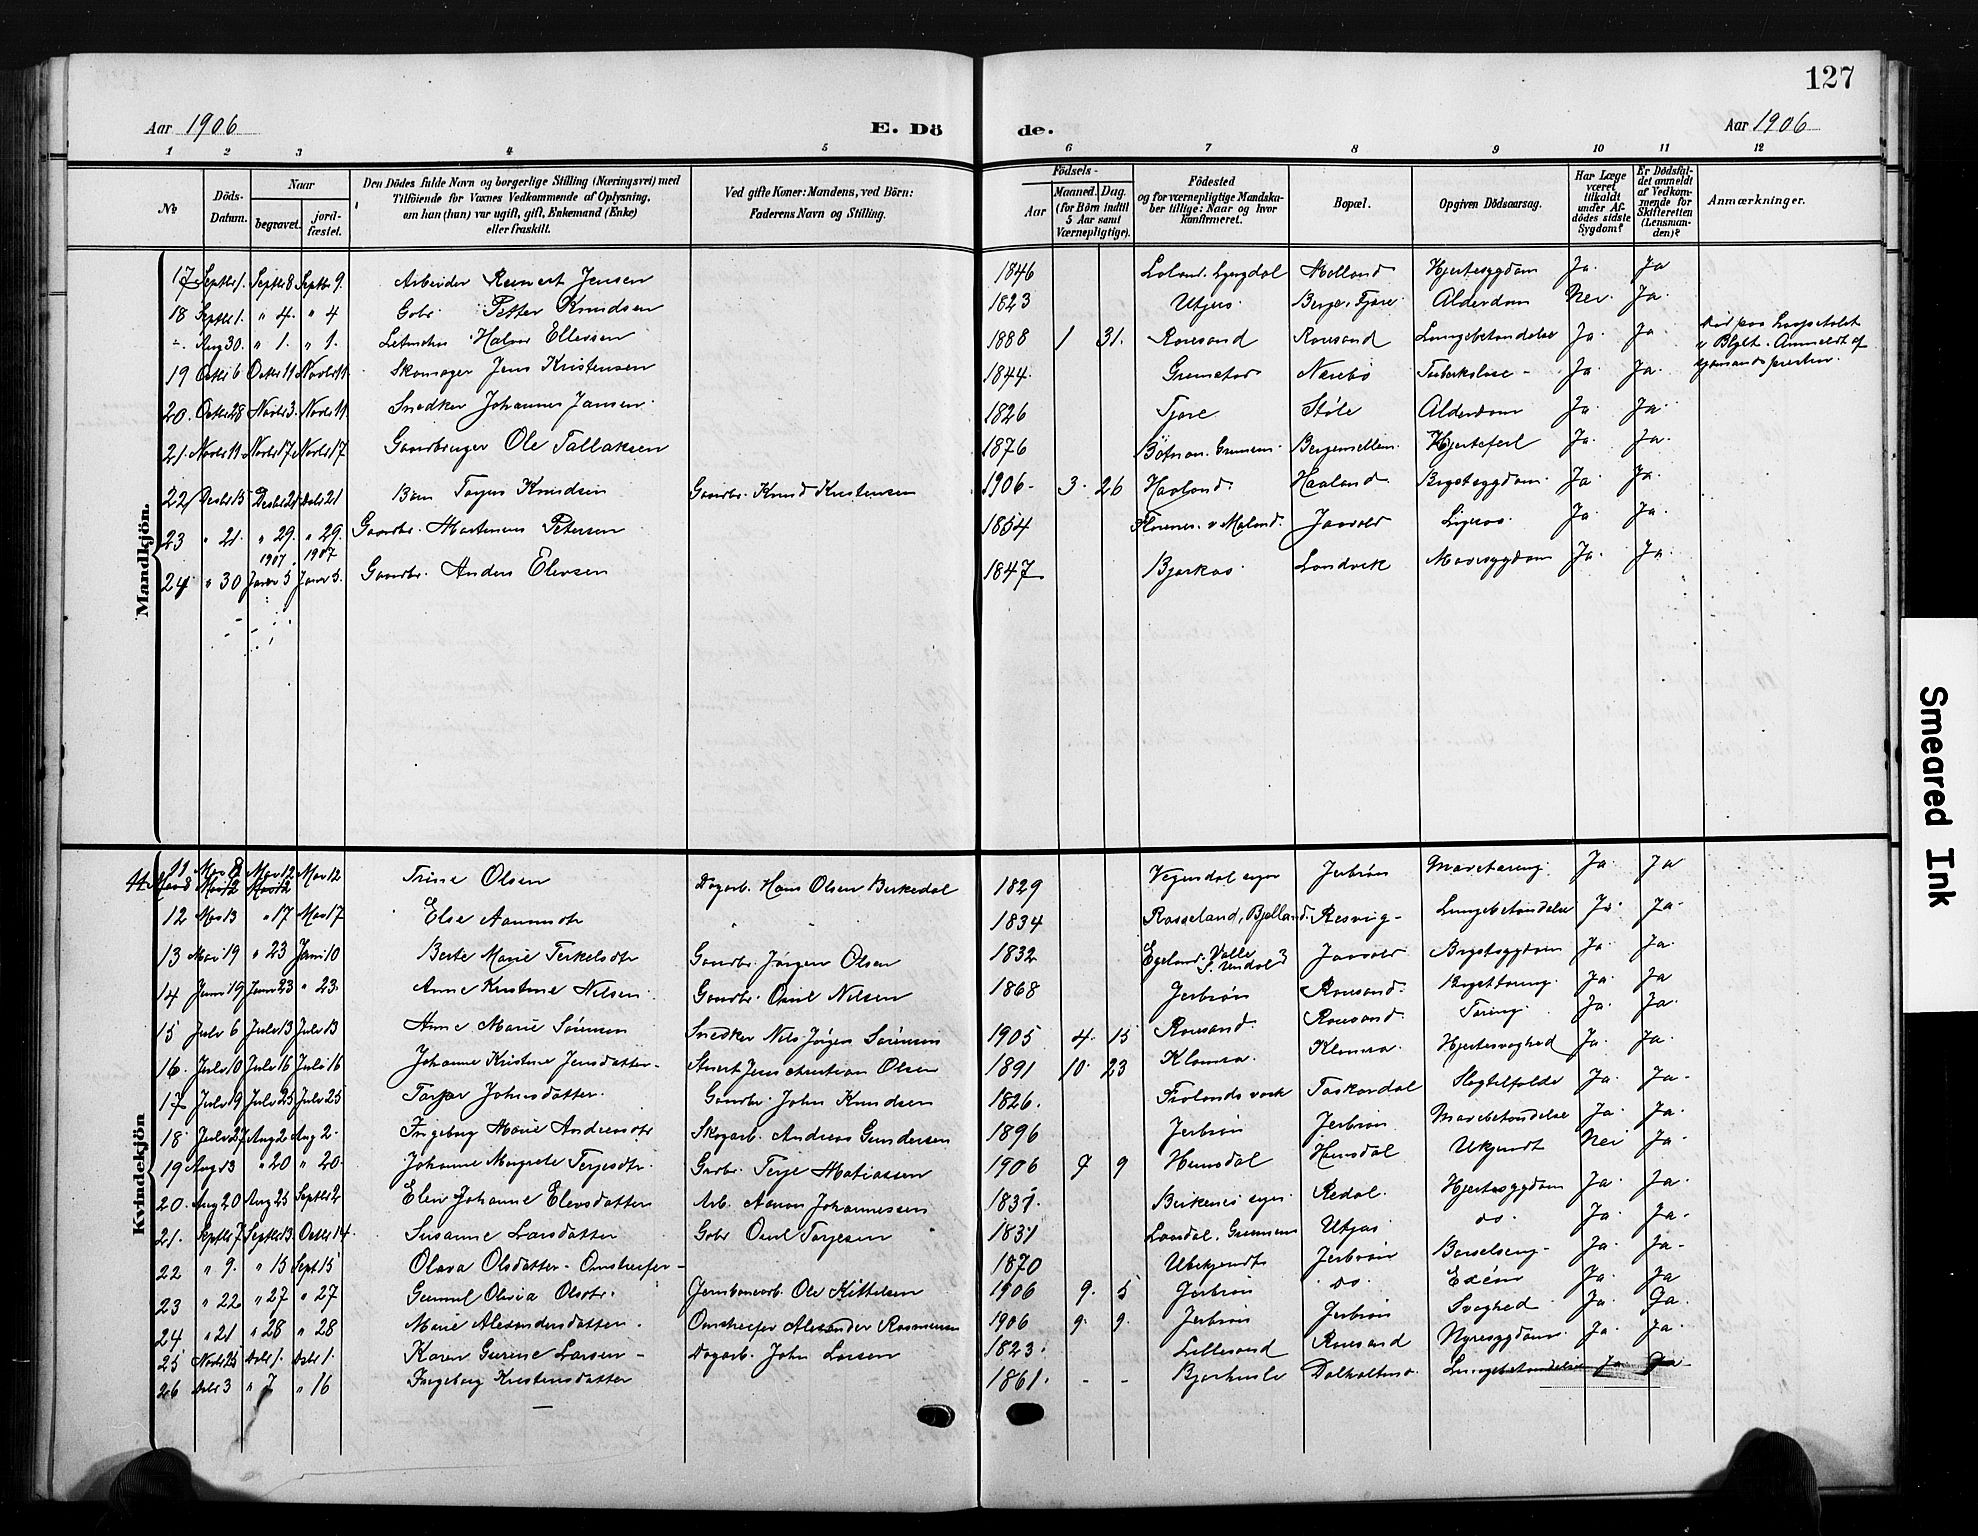 127
Aar 1906 E. Dö de. Aar 1906
1 2 3 4 5 6 7 8 9 10 11 12
No Döds-Datum. Naar begravet. jordfæstet. Den Dödes fulde Navn og borgerlige Stilling (Næringsvei) med Tilföiende for Voxnes Vedkommende af Oplysning, om han (hun) var ugift, gift, Enkemand (Enke) eller fraskilt. Ved gifte Koner: Mandens, ved Börn: Faderens Navn og Stilling. Födsels- Aar Maaned. Dag. (for Börn indtil 5 Aar samt Værnepligtige). Födested og for værnepligtige Mandskaber tillige: Naar og hvor konfirmeret. Bopæl. Opgiven Dödsaarsag. Har Læge været tilkaldt under Afdödes sidste Sygdom? Er Dödsfaldet anmeldt af Vedkommende for Skifteretten (Lensmanden)? Anmærkninger.
Mandkjön.
17 Septbr 1. Septbr 8 Septbr 9. Arbeider Reinert Jensen 1846 Hjertesygdom Ja. Ja
18 Septbr 1. " 4. " 4 Gbr. Petter Knudsen 1823 Utjøs. Berge, Fjære. Alderdom Nei. Ja.
-. Aug 30. " 1. " 1. Halvor Ellevsen 1888 1 31. Roresand Roresand Lungebetændelse Ja. Ja.
19 Octbr 6 Octbr 11 Novbr 11 Skomager Jens Kristensen 1844. Grimstad Nærebø Tuberkulose - Ja. Ja.
20. Octbr 28 Novbr 3. Novbr 11 Snedker Johannes Jansen. 1826 Fjære Støle Alderdom Ja. Ja
21. Novbr 11 Novbr 17 Novbr 17 Gaardbruger Ole Tallaksen 1876 Hjertefeil Ja. Ja.
22 Desbr 13 Desbr 21 Desbr 21 Barn Torjus Knudsen Gaardbr. Knud Kristensen 1906. 3. 26 Haaland. Haaland. Brystsygdom. Ja. Ja.
23 " 21. " 29. " 29. Gaardbr. Mortinius Petersen 1854 Jaavold Ja. Ja.
1907 1907
24 " 30 Janr 5 Janr 5. Gaardbr. Anders Elevsen 1847 Bjorkaas. Landvik Mavesygdom Ja. Ja.
Kvindekjön
11 Mai 8 Mai 12 Mai 12 Trine Olsen Dagarb. Hans Olsen Birkedal 1829 Jerbrøn Mavetæring. Ja. Ja
12 Mai 13 " 17 Mai 17 Else Aanundtr 1834 Rosseland, Bjelland. Resvig - Lungebetændelse Ja. Ja.
13 Mai 19 " 23 Juni 10 Berte Marie Terkelsdtr Gaardbr. Jørgen Olsen 1832 Egeland, Valle, S. Undal? Jaavold Brystsygdom Ja. Ja.
14 Juni 19 Juni 23 " 23. Anne Kristine Nilsen. Gaardbr. Omil Nilsen 1868 Jerbrøn Roresand. Brysttæring. Ja. Ja
15 Juli 6 Juli 13 Juli 13 Anne Marie Sørensen Snedker Nils Jørgen Sørensen 1905 4. 15 Roresand. Roresand. Tæring. Ja. Ja.
16. Juli 10 Juli 16 Juli 16 Johanne Kristine Jensdatter - Jens Christian Olsen 1891 10. 23 Klomra. Klomra. Hjertesvaghed Ja. Ja.
17 Juli 19 Juli 25 Juli 25 Johnsdatter. Gaardbr. John Knudsen 1826. Frolands verk Slagtilfælde Ja. Ja.
18 Juli 27 Aug 2 Aug 2. Ingeborg Marie Andreasdtr Skogarb. Andreas Gundersen 1896 Jerbrøn Jerbrøn. Mavebetændelse Ja. Ja.
19 Aug 13 " 20 " 20. Johanne Margrete Terjesdtr. Gardbr. Terje Matiassen 1906 7 9 Hemsdal Hemsdal Ukjendt Nei Ja.
20. Aug 20 Aug 25 Septbr 2 Elen Johanne Elevsdatter Arb. Aanon Johannessen 1831. Birkenes egn. Rødal. Hjertesygdom Ja. Ja.
21. Septbr 7 Septbr 13 Octbr 14. Susanne Larsdatter Gbr Omil Torjesen 1831 Utjøs. do. Ja. Ja.
22 " 9. " 15 Sept 15 Olava Olsdatter - Omstreifer - 1870 Ubekjendt Jerbrøn Barselseng. Ja. Ja.
23 " 22. " 27 " 27 Gunnil Olevia Olsdtr. Jernbanearb. Ole Kittelsen 1906 9. 5 Jerbrøn do. Exém Ja. Ja
24 " 21 " 28 " 28 Marie Alexandersdatter. Omstreifer Alexander Rasmussen 1906 9. 9. Jerbrøn Jerbrøn Svaghed. Ja. Ja.
25 Novbr 25 Desbr 1. Desbr 1. Karen Gurine Larsen - Dagarb. John Larsen 1823. Lillesand Roresand Nyresygdom. Ja. Ja.
26 Desbr 3 " 7 " 16 Ingeborg Kristensdatter 1861. - - Lungebetændelse Ja Ja
Smeared Ink